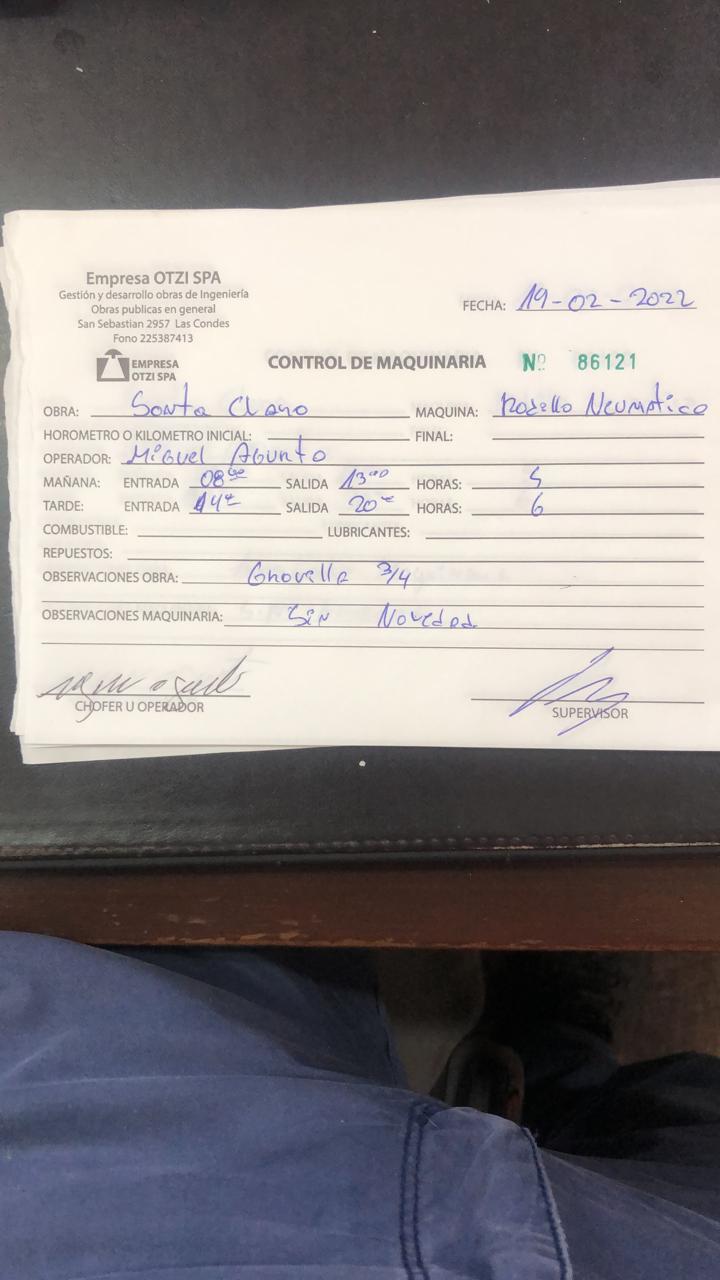 Empresa OTZI SPA
Gestión y desarrollo obras de Ingeniería
Obras publicas en general
San Sebastian 2957 Las Condes
Fono 225387413
FECHA: 19-02-2022
EMPRESA
OTZI SPA
CONTROL DE MAQUINARIA Nº 86121
OBRA: Santa Clara MAQUINA: Rodillo Neumatico
HOROMETRO O KILOMETRO INICIAL: FINAL:
OPERADOR: Miguel Agurto
MAÑANA: ENTRADA 08:00 SALIDA 13:00 HORAS: 5
TARDE: ENTRADA 14 SALIDA 20 HORAS: 6
COMBUSTIBLE: LUBRICANTES:
REPUESTOS:
OBSERVACIONES OBRA: Gravilla 3/4
OBSERVACIONES MAQUINARIA: Sin Novedad
CHOFER U OPERADOR
SUPERVISOR